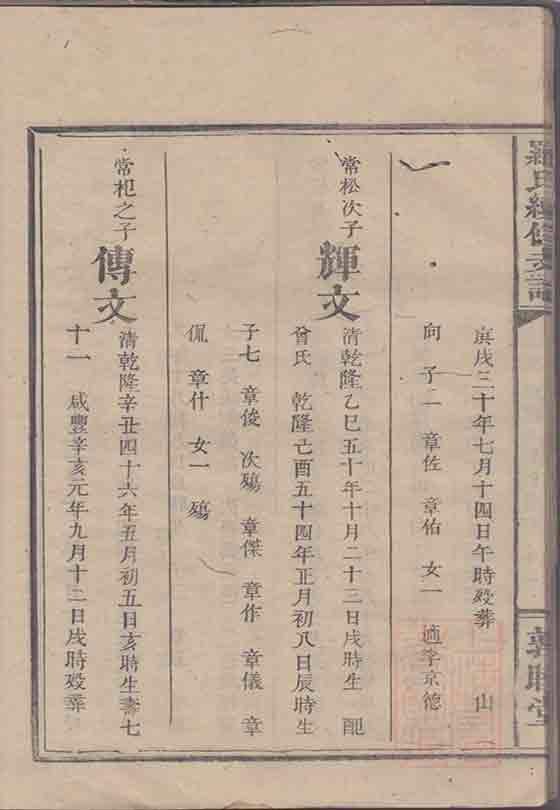 羅氏續修支譜
庚戌三十年七月十四日午時歿葬 山
向 子二 章佐 章佑 女一 適李京德
常松次子
輝文
清乾隆乙巳五十年十月二十三日戌時生 配
曾氏 乾隆己酉五十四年正月初八日辰時生
子七 章俊 次殤 章傑 章作 章儀 章
侃 章什 女一 殤
常杞之子
傳文
清乾隆辛丑四十六年五月初五日亥時生壽七
十一 咸豐辛亥元年九月十二日戌時歿葬